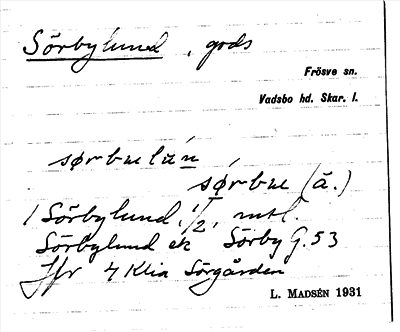 Sörbylund, gods
Frösve sn.
Vadsbo hd. Skar. l.
sørbuelun
sørbue (ä.)
1 Sörbylund, 1/2, mtl.
Sörbylund ek Sörby G. 53
Jfr 4 Klia Sörgården
L. MADSÉN 1931